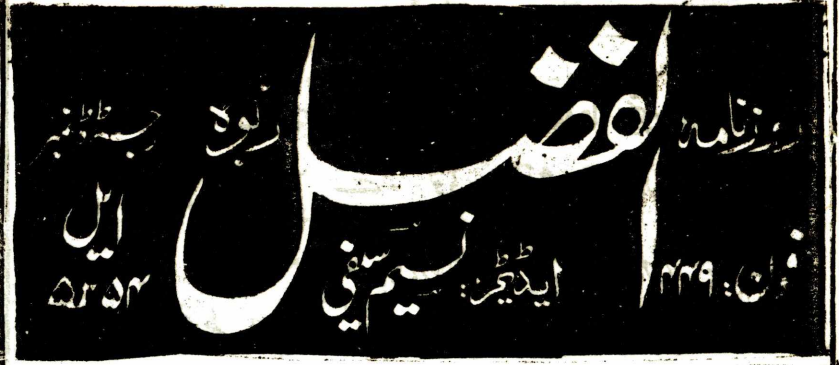 روزنامہ الفضل ربوہ رجسٹرڈ نمبر
ایل
فون: ۴۴۹ ایڈیٹر: نسیم سیفی ۵۲۵۴